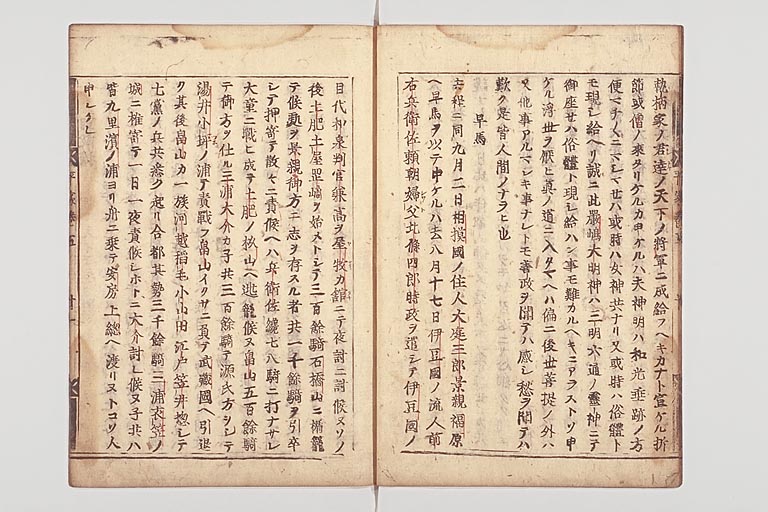 執柄家ノ君達ノ天下ノ將軍ニ成給フヘキカナト宣ケル折
節或僧ノ來タリケルカ申ケルハ夫神明ハ和光垂跡ノ方
便マチ〱ニマシマセハ或時ハ女神共ナリ又或時ハ俗體ト
モ現レ給ヘリ誠ニ此嚴嶋大明神ハ三明六通ノ靈神ニテ
御座セハ俗體ト現シ給ハン事モ難カルヘキニアラストソ申
ケル浮世ヲ厭ヒ眞ノ道ニ入タマヘハ偏ニ後世菩提ノ外ハ
又他事アルマシキ事ナレトモ善政ヲ聞テハ感シ愁ヲ聞テハ
歎ク是皆人間ノナラヒ也
早馬
去程ニ同九月二日相摸國ノ住人大庭三郎景親福原
ヘ早馬ヲ以テ申ケルハ去八月十七日伊豆國ノ流人前
右兵衛佐頼朝婦父北條四郎時政ヲ遣シテ伊豆國ノ
目代和泉判官兼高ヲ屋牧カ舘ニテ夜討ニ討候ヌソノ
後土肥土屋岡崎ヲ始メトシテ三百餘騎石橋山ニ楯籠
テ候處ヲ景親御方ニ志ヲ存スル者共一千餘騎ヲ引率
シテ押寄テ散々ニ責候ヘハ兵衛佐纔七八騎ニ打ナサレ
大童ニ戰ヒ成テ土肥ノ杦山ヘ逃籠候ヌ畠山五百餘騎
テ御方ヲ仕ル三浦大介カ子共三百餘騎テ源氏方ヲシテ
湯井小坪ノ浦テ責戰フ畠山イクサニ負テ武藏國ヘ引退
ク其後畠山カ一族河越稲毛小山田江戸笠井惣シテ
七黨ノ兵共悉ク起リ合都其勢三千餘騎三浦衣笠ノ
城ニ推寄テ一日一夜責候シホトニ大介討レ候ヌ子共ハ
皆九里濱ノ浦ヨリ舟ニ乗テ安房上總ヘ渡リヌトコソ人
申シケレ